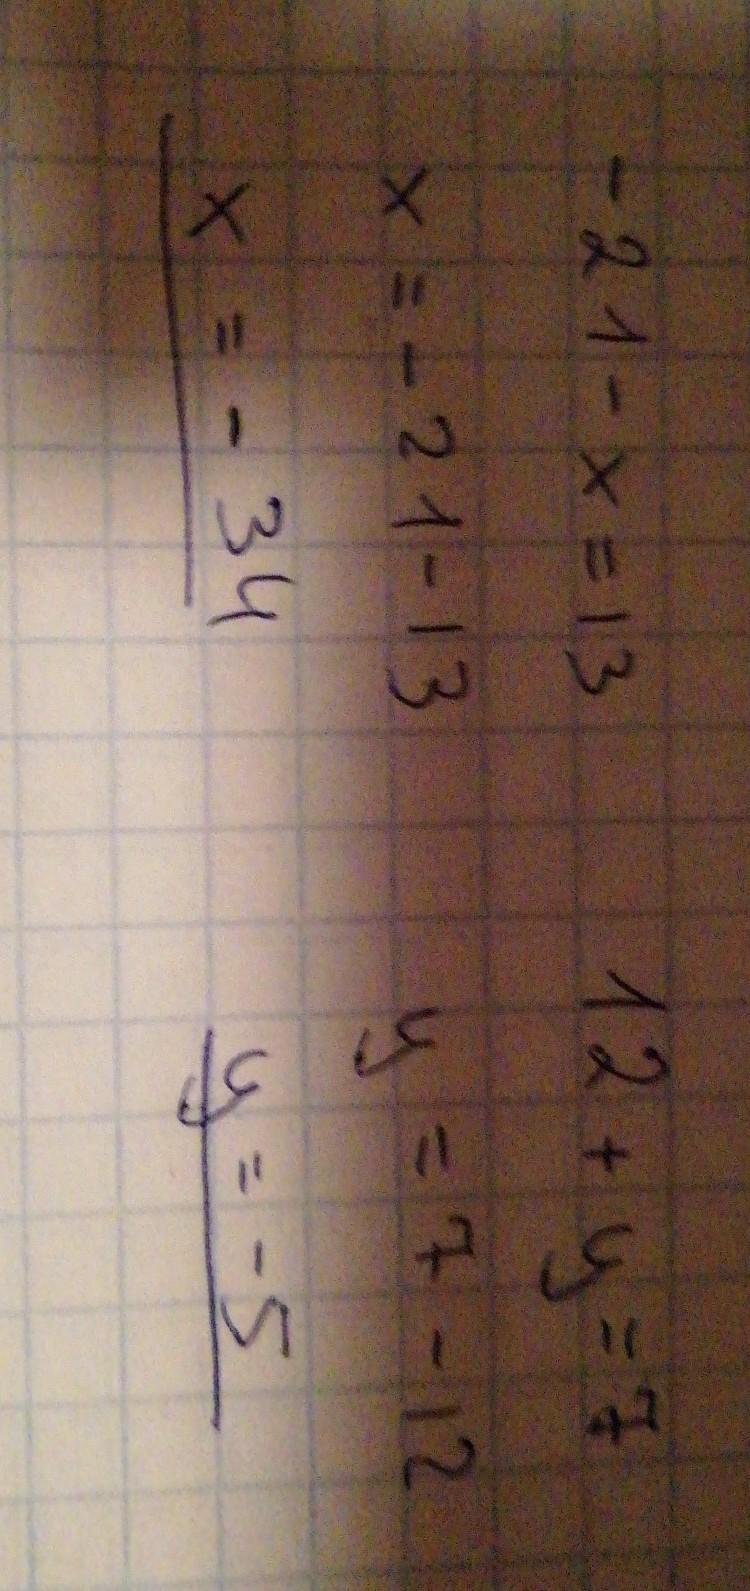 -21-x=13
x=-21-13
x=-34
12+y=7
y=7-12
y=-5